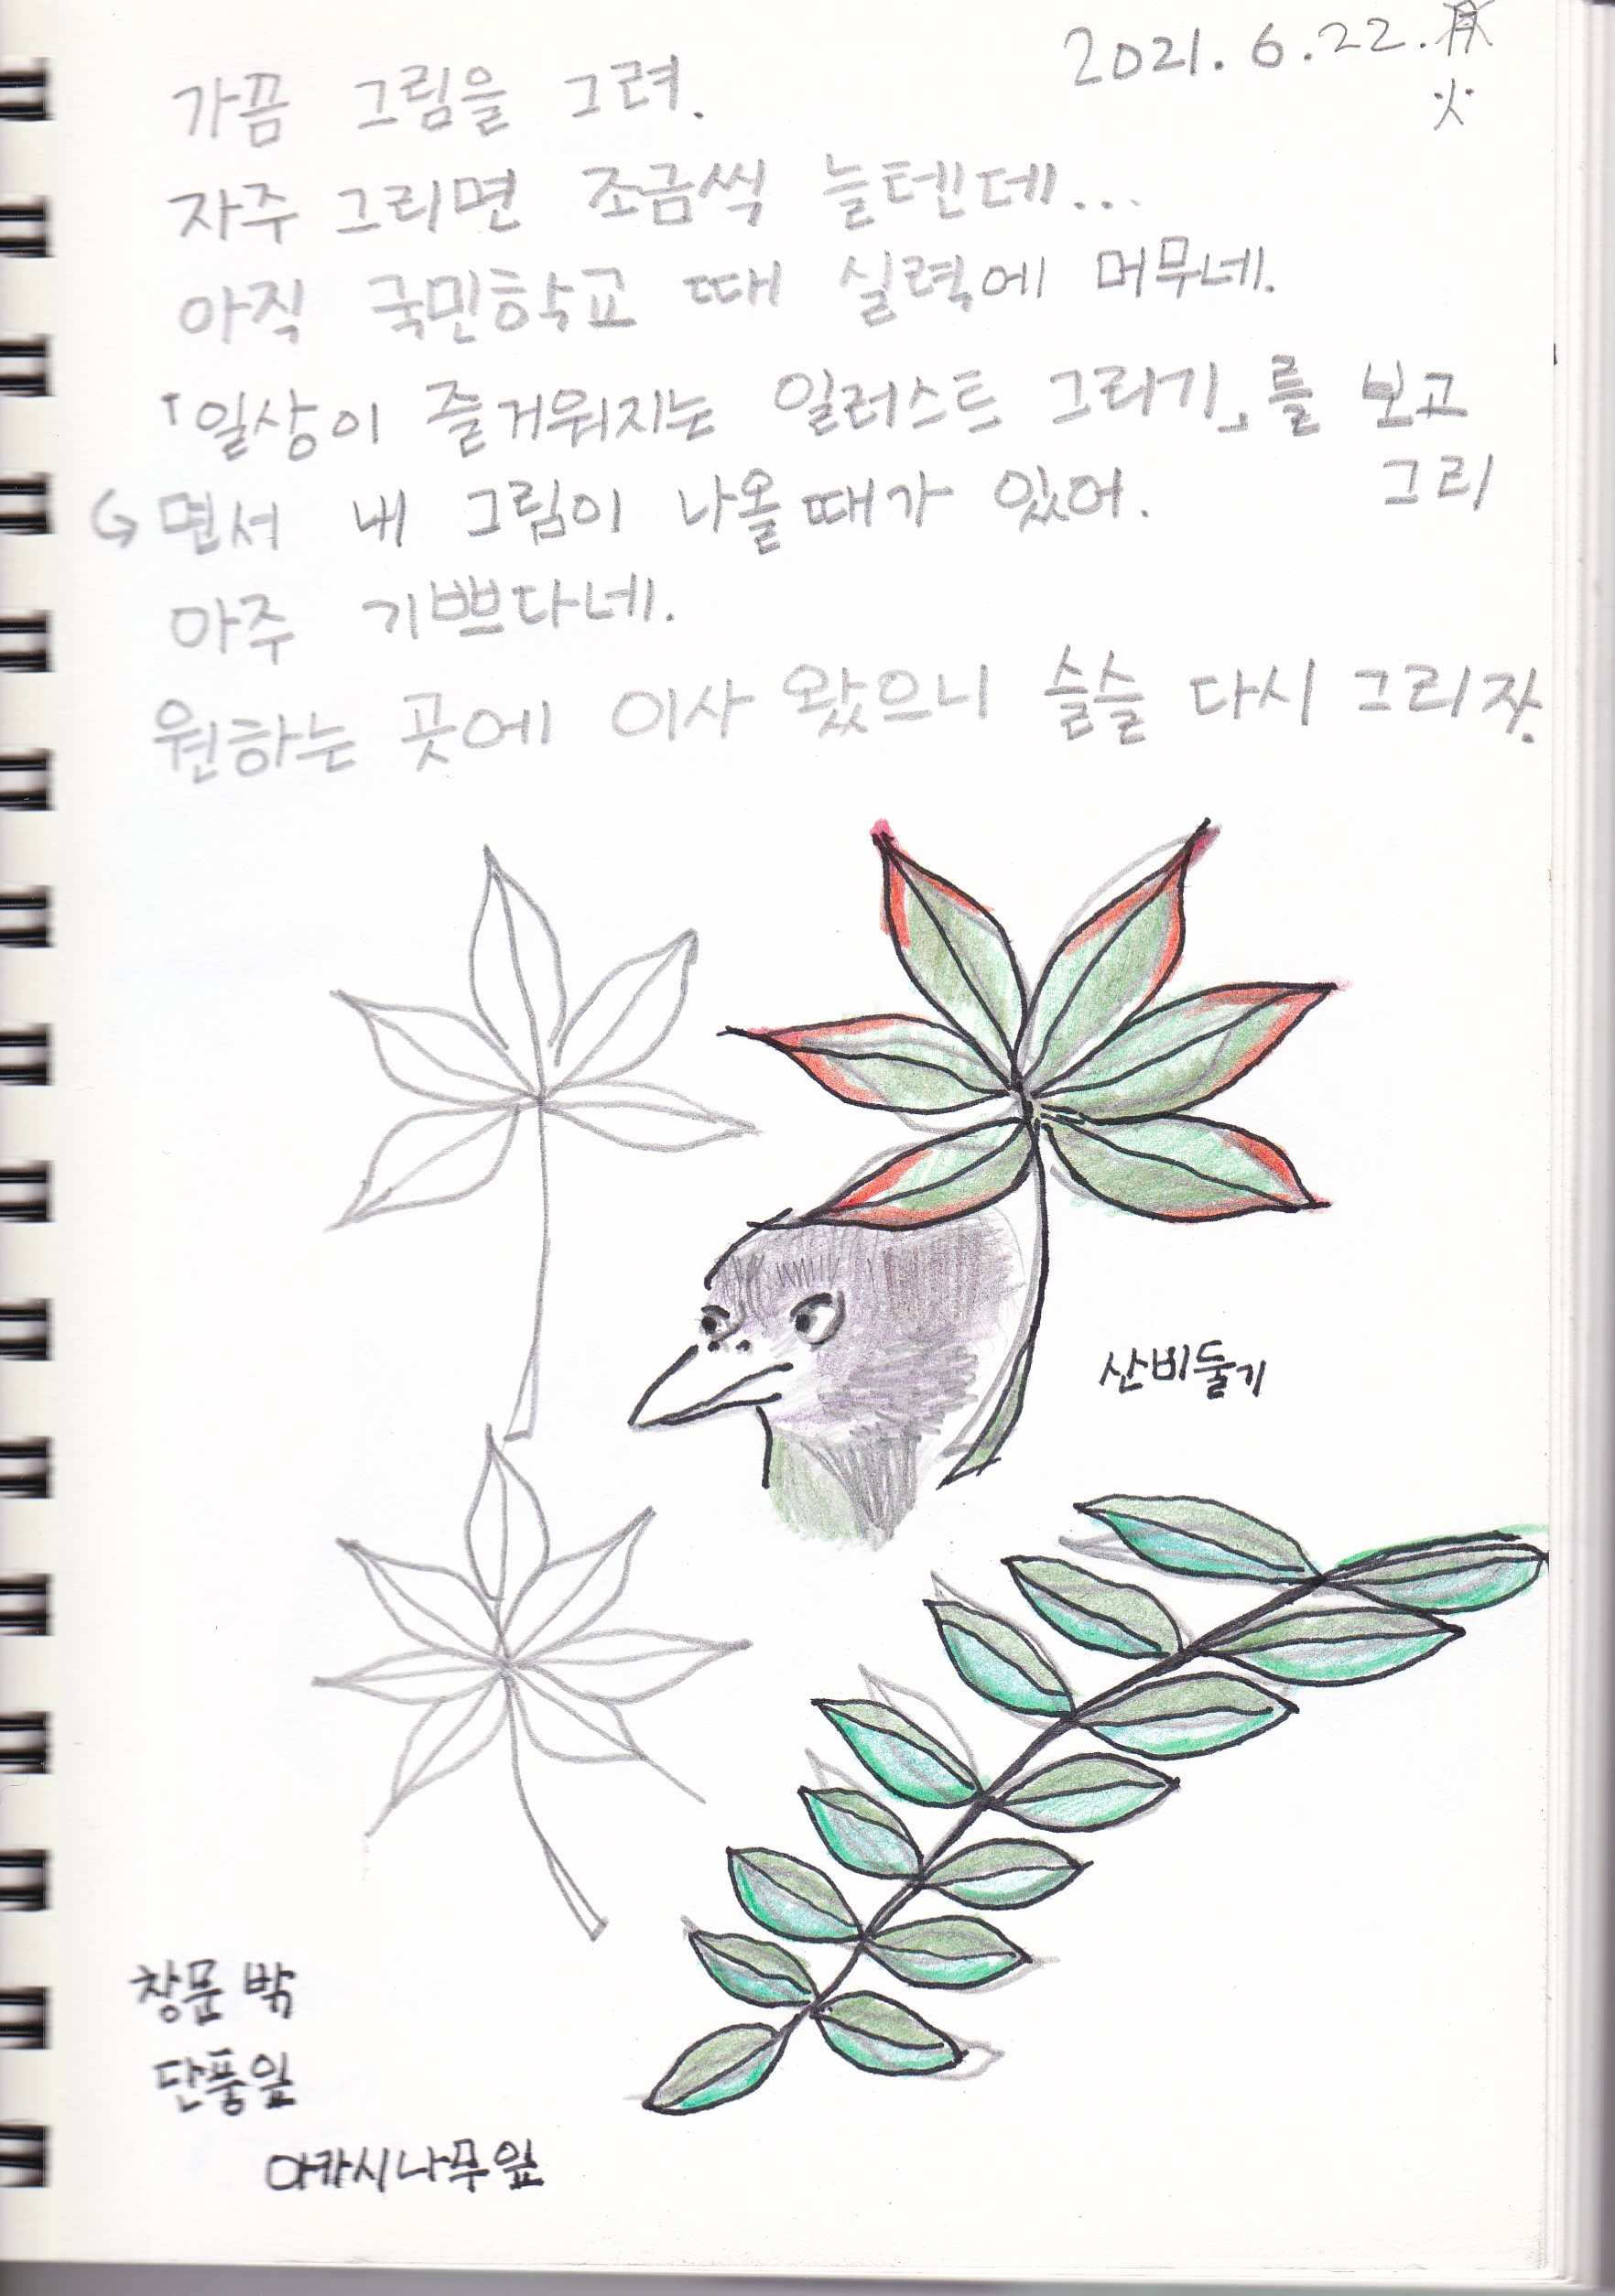 2021. 6. 22. 月
火
가끔 그림을 그려.
자주 그리면 조금씩 늘텐데...
아직 국민학교 때 실력에 머무네.
「일상이 즐거워지는 일러스트 그리기」를 보고
그리
면서 내 그림이 나올때가 있어.
아주 기쁘다네.
원하는 곳에 이사 왔으니 슬슬 다시 그리자.
산비둘기
창문 밖
단풍잎
아카시나무잎